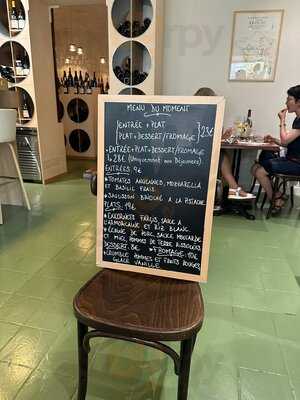 MENU DU MOMENT
ENTRÉE + PLAT
PLAT + DESSERT/FROMAGE } 23€
* ENTRÉE + PLAT + DESSERT/FROMAGE
} 28€ (Uniquement aux Déjeuners)
ENTRÉES: 9€
* TOMATES ANCIENNES, MOZZARELLA
ET BASILIC FRAIS
* SAUCISSON BRIOCHÉ A LA PISTACHE
PLATS: 19€
* ENCORNETS FARCIS, SAUCE A
L'ARMORICAINE ET RIZ BLANC
* ÉCHINE DE PORC, SAUCE MOUTARDE
ET MIEL, POMMES DE TERRE RISSOLÉES
DESSERT: 8€ * FROMAGE: 10€
CRUMBLE POMMES ET FRUITS ROUGES
GLACE VANILLE